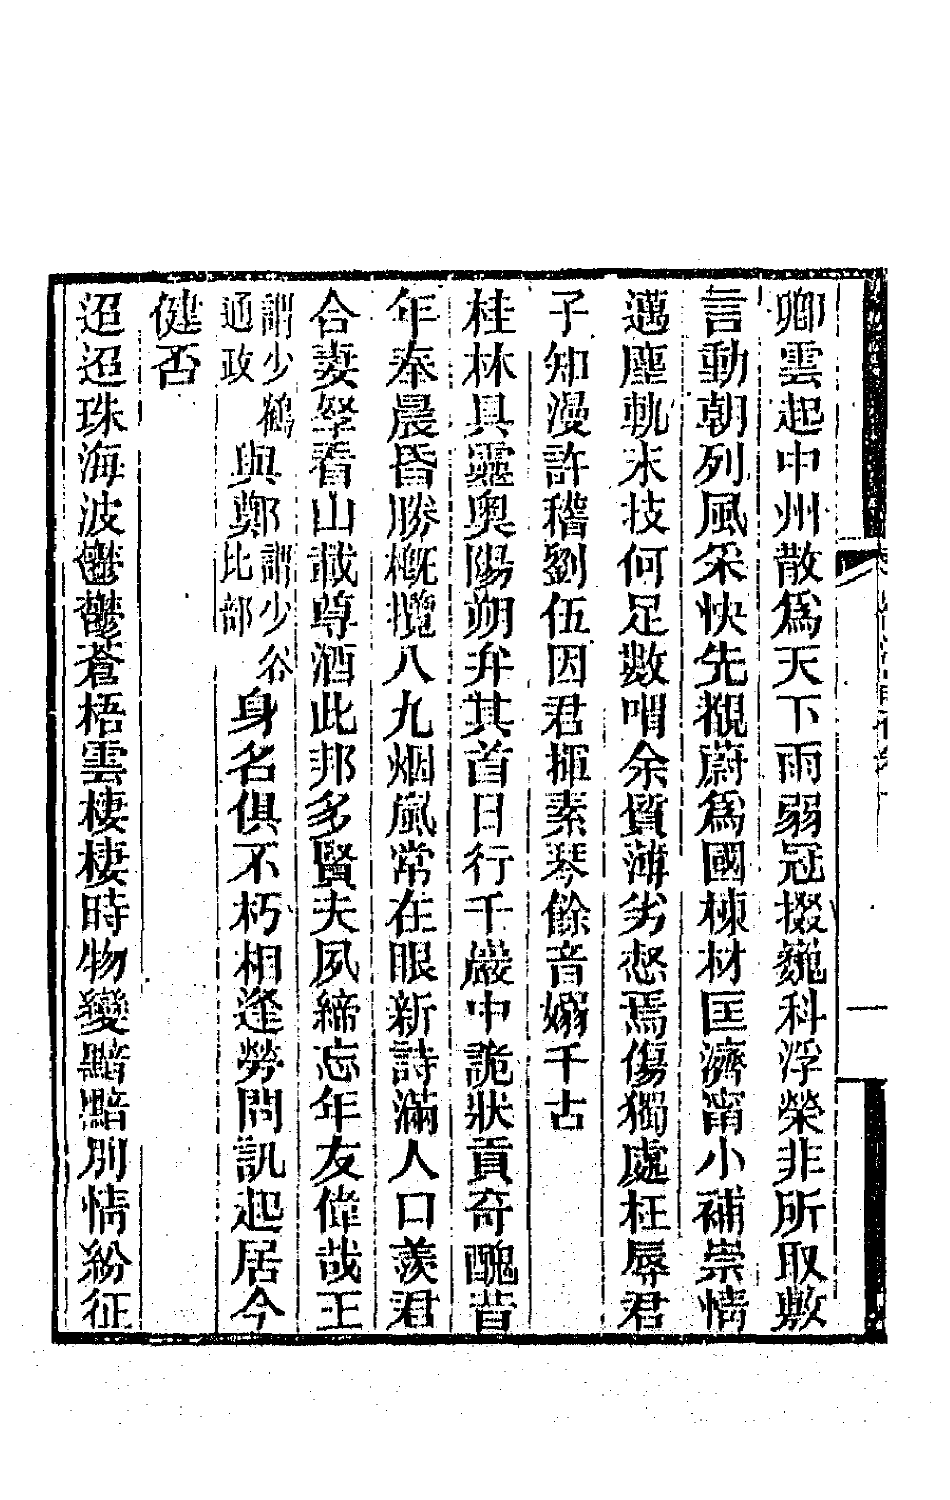 卿雲起中州散爲天下雨弱冠掇巍科浮榮非所取敷
言動朝列風采快先覩蔚爲國棟材匡濟甯小補崇情
邁塵軌末技何足數喟余質薄劣惄焉傷獨處枉辱君
子知漫許稽劉伍因君揮素琴餘音嫋千古
桂林具靈奧陽朔弁其首日行千巖中詭狀貢奇醜昔
年奉晨昏勝概攬八九烟嵐常在眼新詩滿人口羨君
合妻孥看山載尊酒此邦多賢夫夙締忘年友偉哉王
謂少鶴通政與鄭謂少谷比部身名俱不朽相逢勞問訊起居今
健否
迢迢珠海波鬱鬱蒼梧雲棲棲時物變黯黯別情紛征